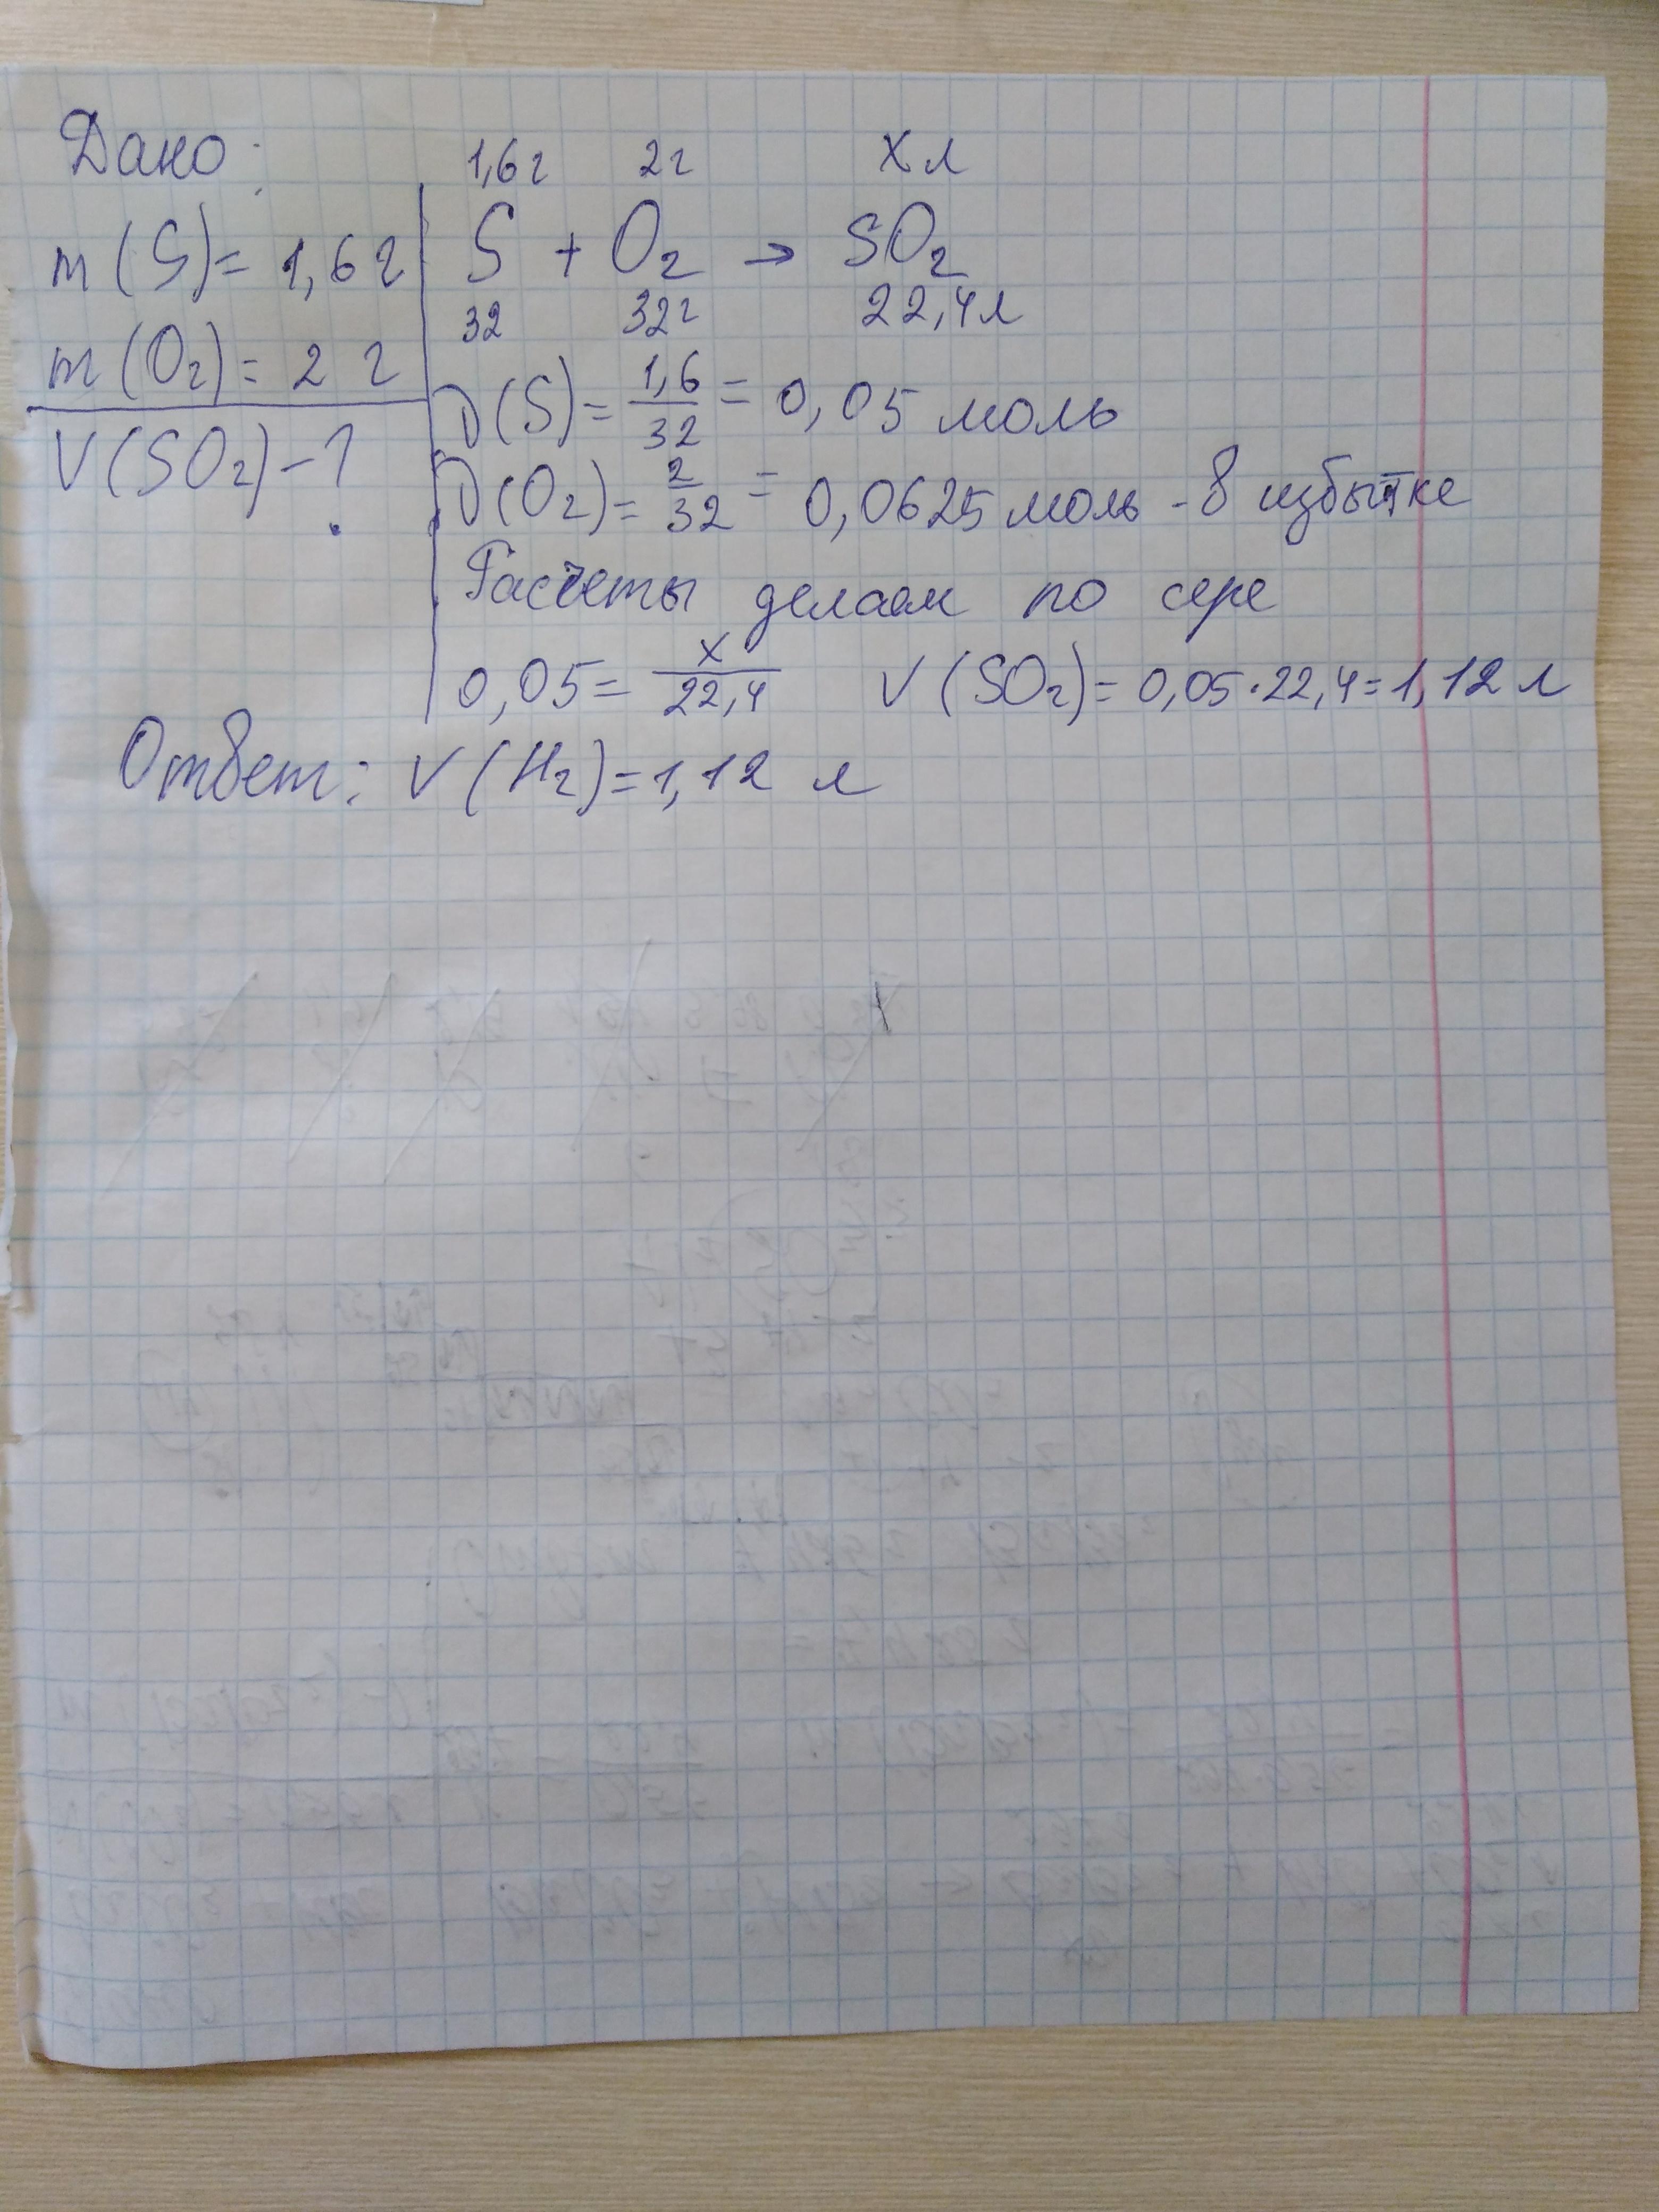 Дано:
m(S)= 1,6 г
m(O₂)= 2 г
V(SO₂)-?
1,6г 2г X л
S + O₂ → SO₂
32 32г 22,4л
ν(S)= 1,6/32 = 0,05 моль
ν(O₂)= 2/32 = 0,0625 моль - в избытке
Расчеты делаем по сере
0,05= x/22,4 V(SO₂)= 0,05·22,4=1,12 л
Ответ: V(H₂)=1,12 л